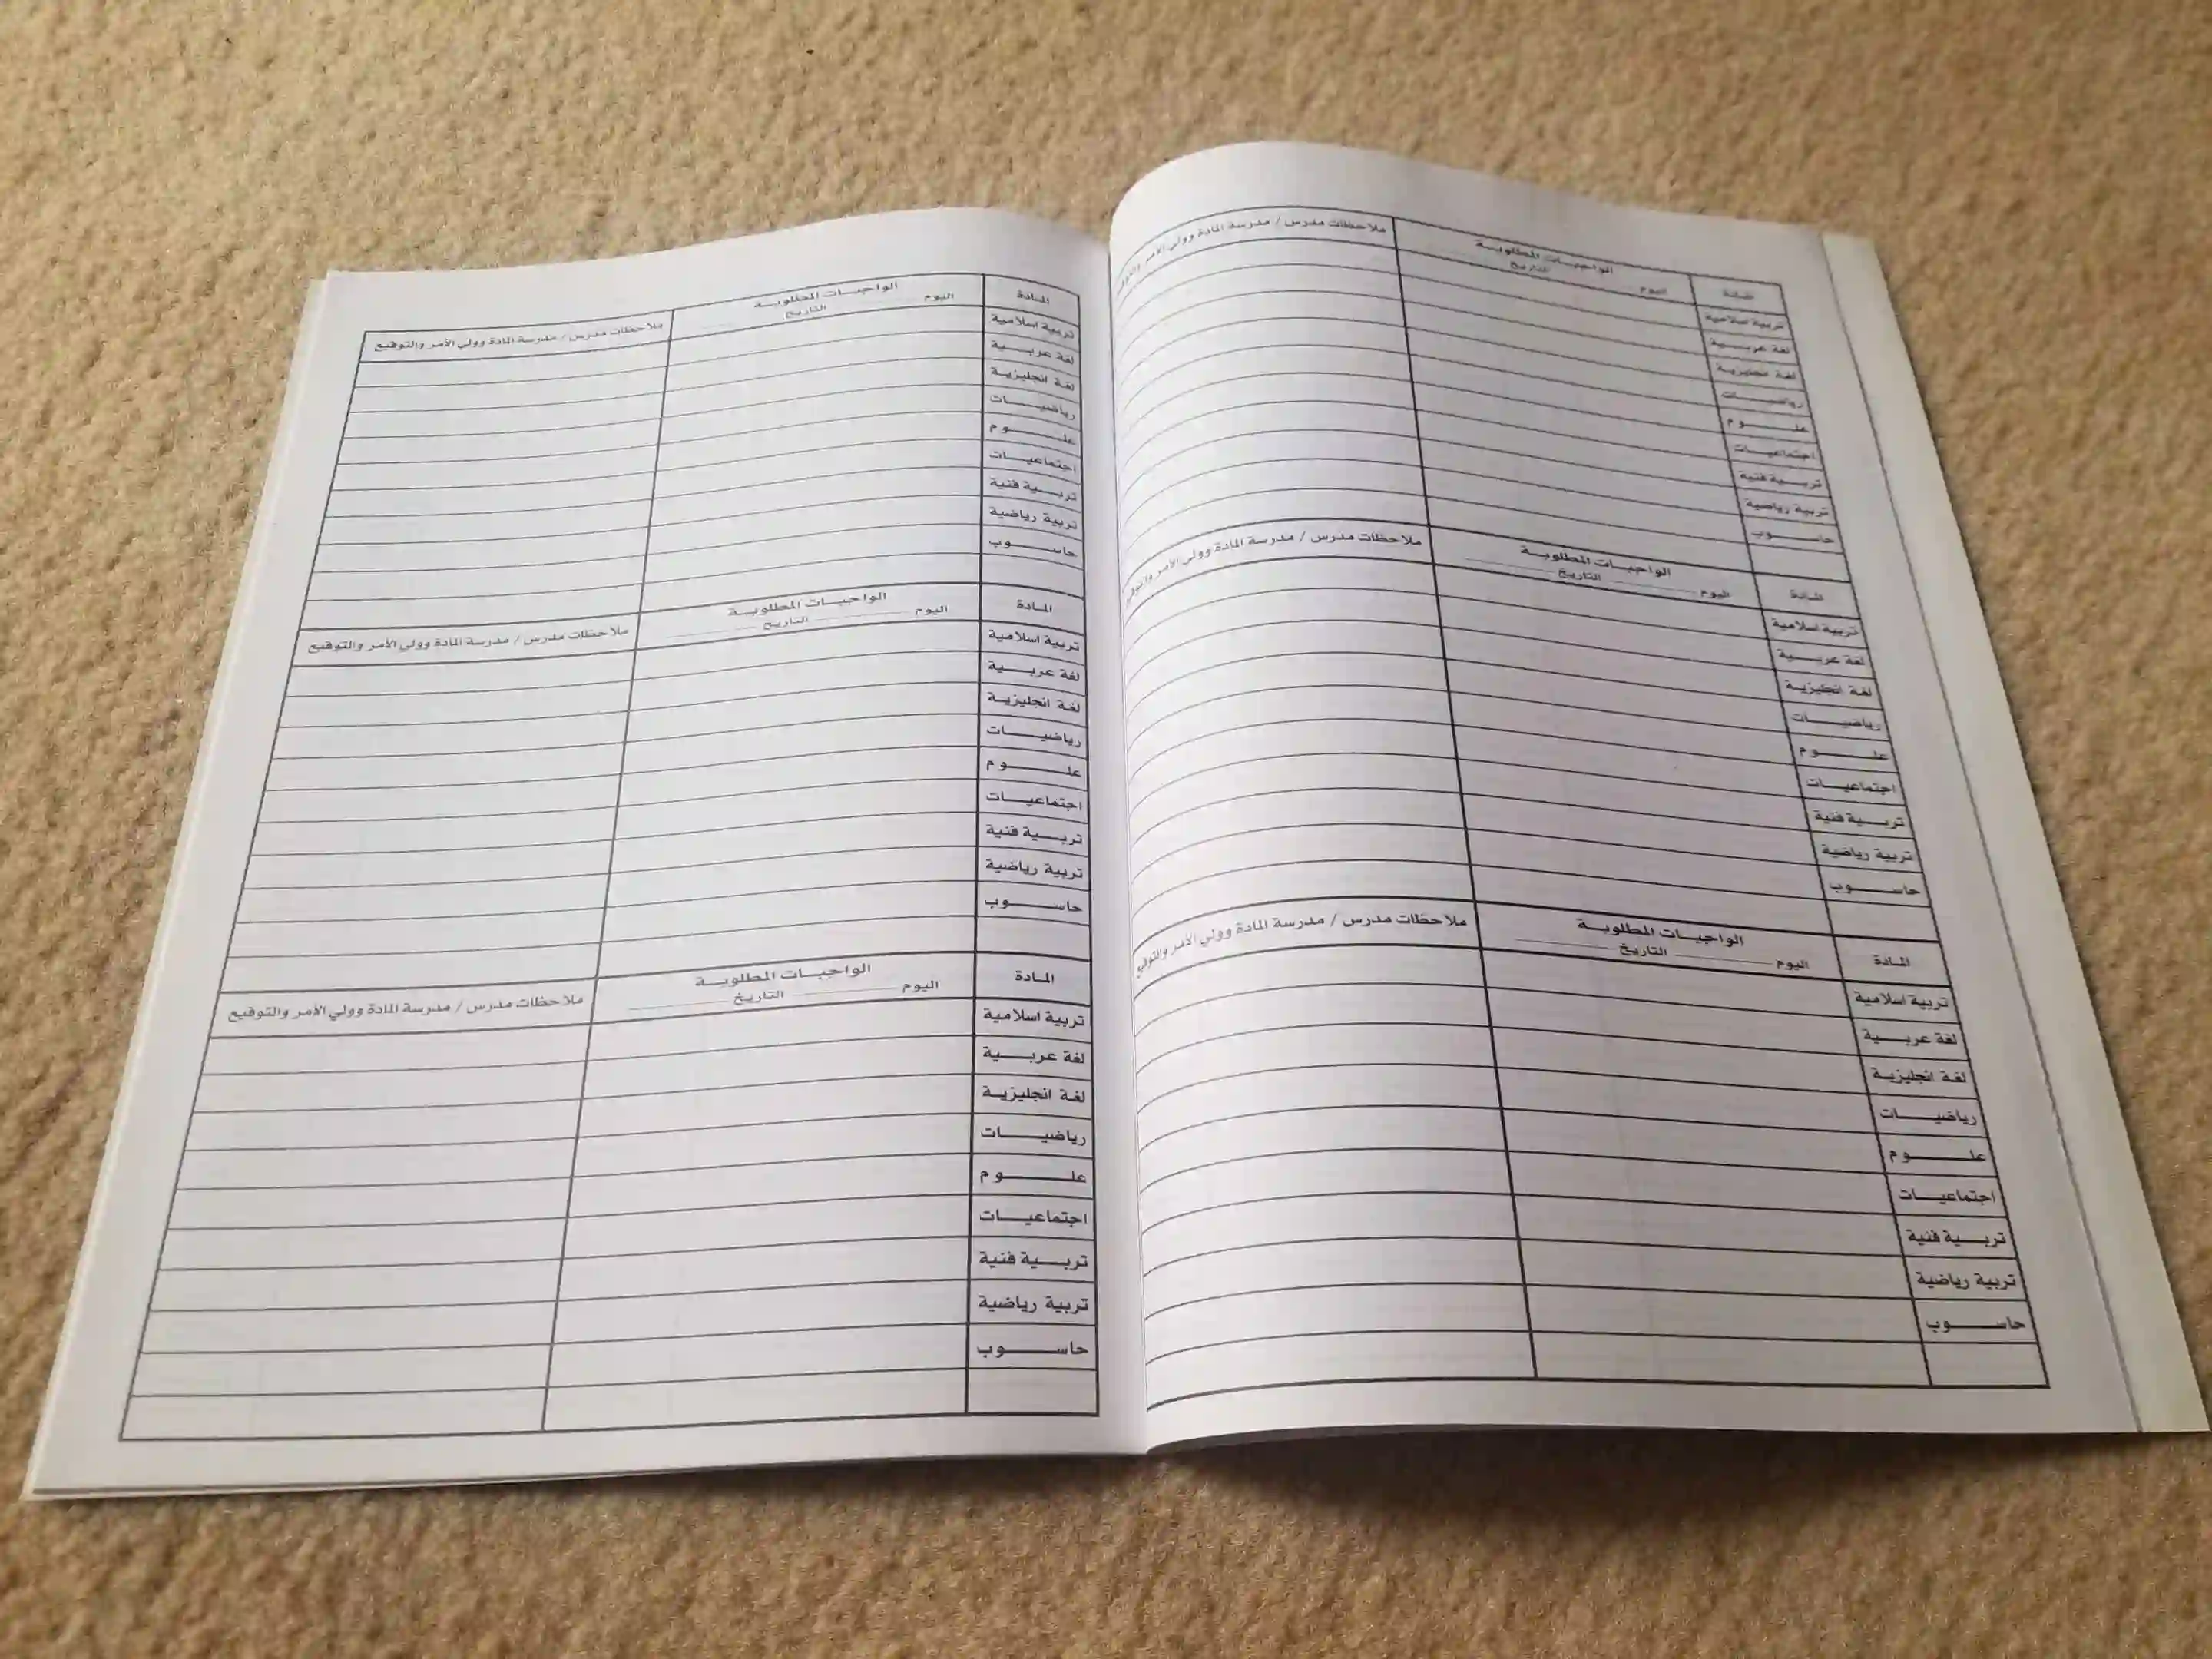 المادة الواجبات المطلوبة ملاحظات مدرس / مدرسة المادة وولي الأمر والتوقيع
اليوم التاريخ
تربية اسلامية
لغة عربية
لغة انجليزية
رياضيات
علوم
اجتماعيات
تربية فنية
تربية رياضية
حاسوب
المادة الواجبات المطلوبة ملاحظات مدرس / مدرسة المادة وولي الأمر والتوقيع
اليوم التاريخ
تربية اسلامية
لغة عربية
لغة انجليزية
رياضيات
علوم
اجتماعيات
تربية فنية
تربية رياضية
حاسوب
المادة الواجبات المطلوبة ملاحظات مدرس / مدرسة المادة وولي الأمر والتوقيع
اليوم التاريخ
تربية اسلامية
لغة عربية
لغة انجليزية
رياضيات
علوم
اجتماعيات
تربية فنية
تربية رياضية
حاسوب
المادة الواجبات المطلوبة ملاحظات مدرس / مدرسة المادة وولي الأمر والتوقيع
اليوم التاريخ
تربية اسلامية
لغة عربية
لغة انجليزية
رياضيات
علوم
اجتماعيات
تربية فنية
تربية رياضية
حاسوب
المادة الواجبات المطلوبة ملاحظات مدرس / مدرسة المادة وولي الأمر والتوقيع
اليوم التاريخ
تربية اسلامية
لغة عربية
لغة انجليزية
رياضيات
علوم
اجتماعيات
تربية فنية
تربية رياضية
حاسوب
المادة الواجبات المطلوبة ملاحظات مدرس / مدرسة المادة وولي الأمر والتوقيع
اليوم التاريخ
تربية اسلامية
لغة عربية
لغة انجليزية
رياضيات
علوم
اجتماعيات
تربية فنية
تربية رياضية
حاسوب